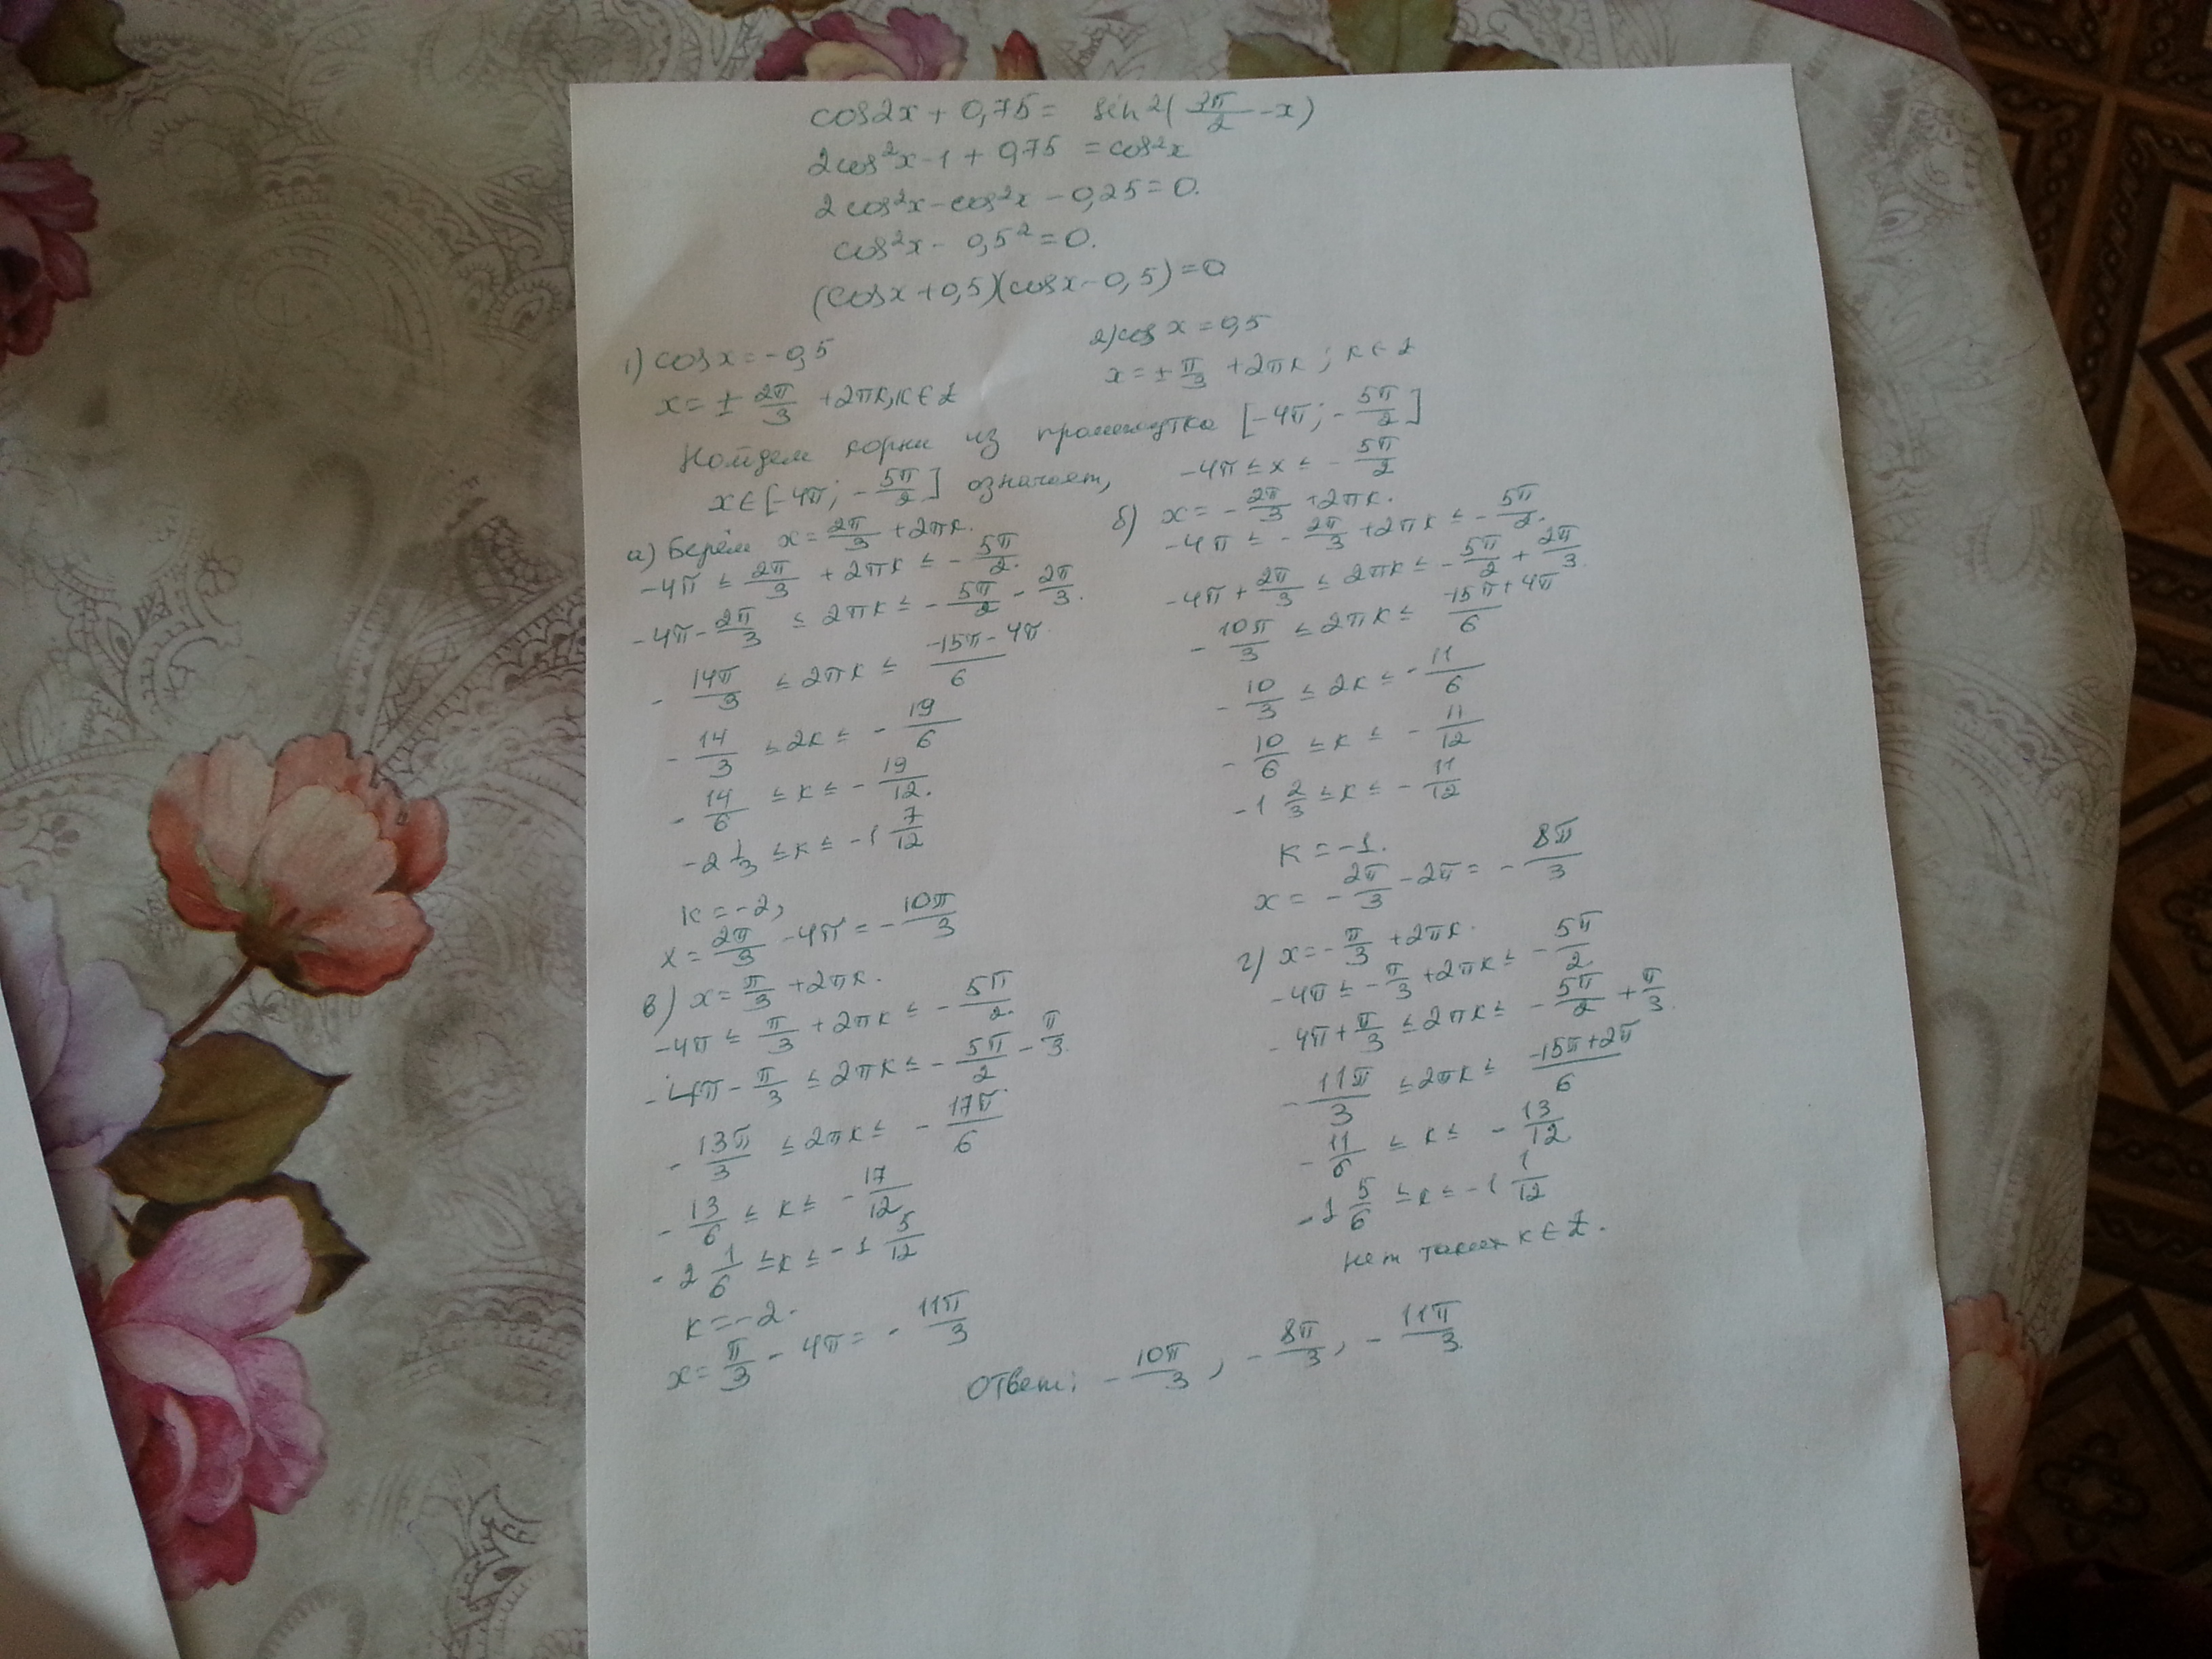 cos2x + 0,75 = sin2(3π/2 - x)
2cos²x - 1 + 0,75 = cos²x
2cos²x - cos²x - 0,25 = 0.
cos²x - 0,5² = 0.
(cosx + 0,5)(cosx - 0,5) = 0
1) cosx = -0,5
x = ± 2π/3 + 2πk, k ∈ Z
2) cos x = 0,5
x = ± π/3 + 2πk ; k ∈ Z
Найдем корни из промежутка [-4π; - 5π/2]
x ∈ [-4π; - 5π/2] означает, -4π ≤ x ≤ - 5π/2
а) Берём x = 2π/3 + 2πk.
-4π ≤ 2π/3 + 2πk ≤ - 5π/2.
-4π - 2π/3 ≤ 2πk ≤ - 5π/2 - 2π/3.
- 14π/3 ≤ 2πk ≤ (-15π - 4π)/6
- 14/3 ≤ 2k ≤ - 19/6
- 14/6 ≤ k ≤ - 19/12.
-2 1/3 ≤ k ≤ -1 7/12
k = -2,
x = 2π/3 - 4π = - 10π/3
б) x = - 2π/3 + 2πk.
-4π ≤ - 2π/3 + 2πk ≤ - 5π/2.
-4π + 2π/3 ≤ 2πk ≤ - 5π/2 + 2π/3.
- 10π/3 ≤ 2πk ≤ (-15π + 4π)/6
- 10/3 ≤ 2k ≤ - 11/6
- 10/6 ≤ k ≤ - 11/12
-1 2/3 ≤ k ≤ - 11/12
k = -1.
x = - 2π/3 - 2π = - 8π/3
в) x = π/3 + 2πk.
-4π ≤ π/3 + 2πk ≤ - 5π/2.
-4π - π/3 ≤ 2πk ≤ - 5π/2 - π/3.
- 13π/3 ≤ 2πk ≤ - 17π/6
- 13/6 ≤ k ≤ - 17/12
-2 1/6 ≤ k ≤ -1 5/12
k = -2.
x = π/3 - 4π = - 11π/3
г) x = - π/3 + 2πk.
-4π ≤ - π/3 + 2πk ≤ - 5π/2
- 4π + π/3 ≤ 2πk ≤ - 5π/2 + π/3.
- 11π/3 ≤ 2πk ≤ (-15π + 2π)/6
- 11/6 ≤ k ≤ - 13/12
-1 5/6 ≤ k ≤ -1 1/12
нет таких k ∈ Z.
Ответ: - 10π/3, - 8π/3, - 11π/3.